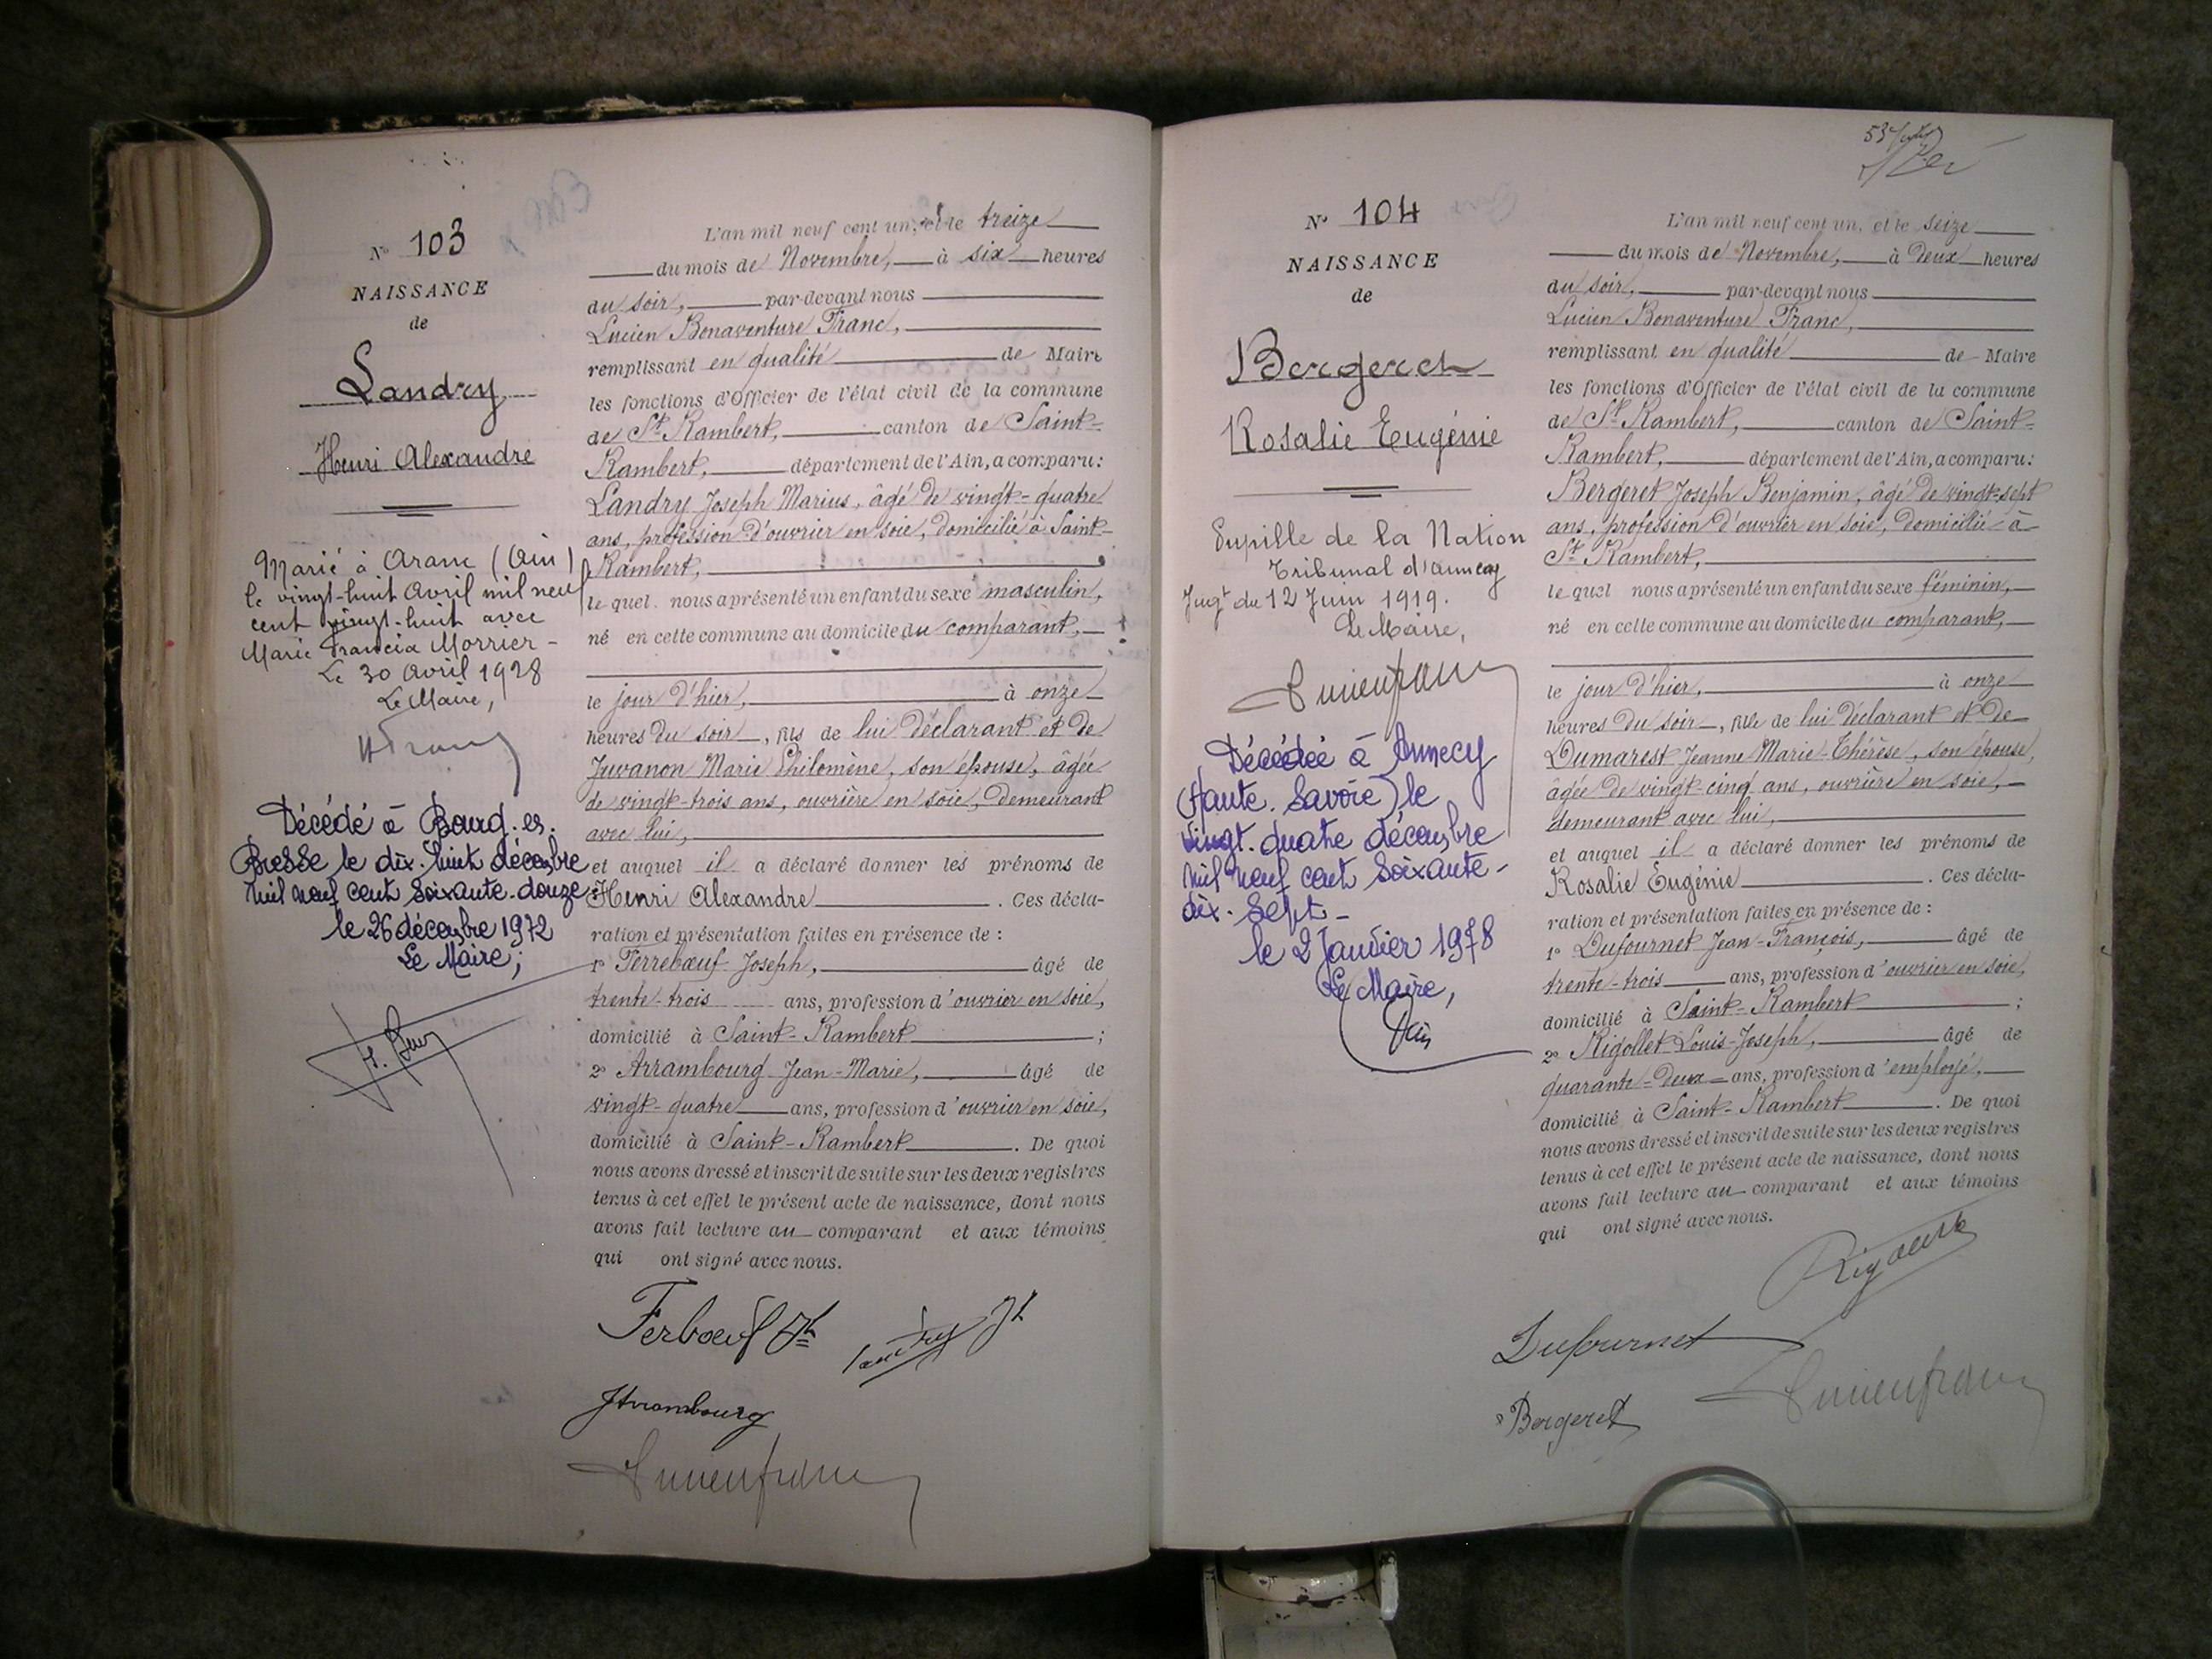 N° 103
NAISSANCE
de
Landry
Henri Alexandre
Marié à Aranc (Ain)
le vingt-huit Avril mil neuf
cent vingt-huit avec
Marie Francia Morrier -
Le 30 Avril 1928
Le Maire,
Décédé à Bourg-es-
Bresse le dix-huit décembre
mil neuf cent soixante-douze
le 26 décembre 1972
Le Maire;
L'an mil neuf cent un, et le treize
du mois de Novembre, à six heures
du soir, par-devant nous
Lucien Bonaventure Franc,
remplissant en qualité de Maire
les fonctions d'Officier de l'état civil de la commune
de St Rambert, canton de Saint-
Rambert, département de l'Ain, a comparu:
Landry Joseph Marius, âgé de vingt-quatre
ans, profession d'ouvrier en soie, domicilié à Saint-
Rambert,
le quel nous a présenté un enfant du sexe masculin,
né en cette commune au domicile du comparant,
le jour d'hier, à onze
heures du soir, fils de lui déclarant et de
Juvanon Marie Philomène, son épouse, âgée
de vingt-trois ans, ouvrière en soie, demeurant
avec lui,
et auquel il a déclaré donner les prénoms de
Henri Alexandre. Ces décla-
ration et présentation faites en présence de :
1° Ferrebœuf Joseph, âgé de
trente-trois ans, profession d'ouvrier en soie,
domicilié à Saint-Rambert ;
2° Arrambourg Jean-Marie, âgé de
vingt-quatre ans, profession d'ouvrier en soie,
domicilié à Saint-Rambert. De quoi
nous avons dressé et inscrit de suite sur les deux registres
tenus à cet effet le présent acte de naissance, dont nous
avons fait lecture au comparant et aux témoins
qui ont signé avec nous.
Ferboeuf Jh
Landry Jh
JArrambourg
Lucien franc
N° 104
NAISSANCE
de
Bergeret
Rosalie Eugénie
Pupille de la Nation
Tribunal d'Annecy
Jugt du 12 Juin 1919.
Le Maire,
Lucien franc
Décédée à Annecy
(Haute-Savoie) le
vingt-quatre décembre
mil neuf cent soixante-
dix-sept-
le 2 Janvier 1978
Le Maire,
L'an mil neuf cent un, et le seize
du mois de Novembre, à deux heures
du soir, par-devant nous
Lucien Bonaventure Franc,
remplissant en qualité de Maire
les fonctions d'Officier de l'état civil de la commune
de St Rambert, canton de Saint-
Rambert, département de l'Ain, a comparu:
Bergeret Joseph Benjamin, âgé de vingt-sept
ans, profession d'ouvrier en soie, domicilié à
St Rambert,
le quel nous a présenté un enfant du sexe féminin,
né en cette commune au domicile du comparant,
le jour d'hier, à onze
heures du soir, fille de lui déclarant et de
Dumarest Jeanne Marie-Thérèse, son épouse,
âgée de vingt-cinq ans, ouvrière en soie,
demeurant avec lui,
et auquel il a déclaré donner les prénoms de
Rosalie Eugénie. Ces décla-
ration et présentation faites en présence de :
1° Dufournet Jean-François, âgé de
trente-trois ans, profession d'ouvrier en soie,
domicilié à Saint-Rambert ;
2° Rigollet Louis-Joseph, âgé de
quarante-deux ans, profession d'employé,
domicilié à Saint-Rambert. De quoi
nous avons dressé et inscrit de suite sur les deux registres
tenus à cet effet le présent acte de naissance, dont nous
avons fait lecture au comparant et aux témoins
qui ont signé avec nous.
Dufournet
Bergeret
Lucien franc